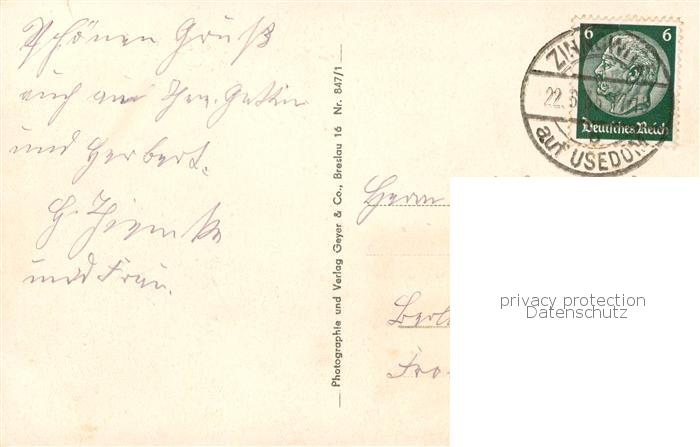 Schönen Gruß
auch an Ihre Gattin
und Herbert.
H. Thiemke
und Frau.
Photographie und Verlag Geyer & Co., Breslau 16 Nr. 847/1
6 6
Deutsches Reich
22.
auf USEDOM
Herrn
Berl
Fra
privacy protection
Datenschutz